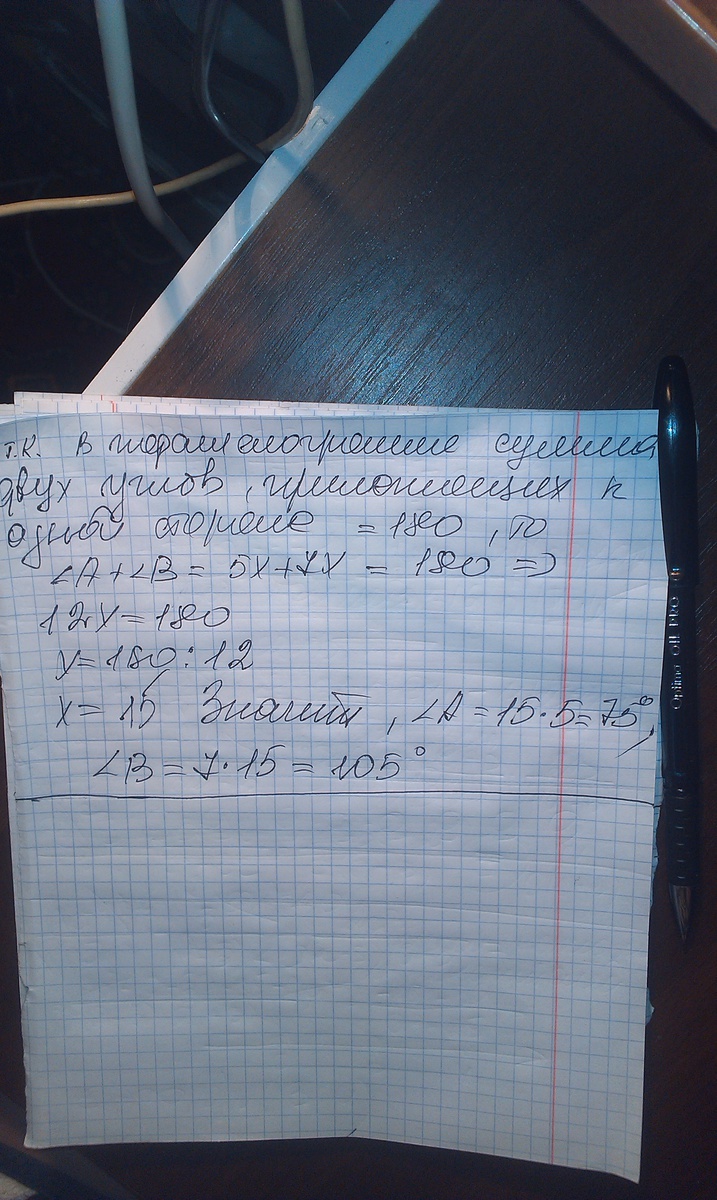 т.к. в параллелограмме сумма
двух углов, прилежащих к
одной стороне = 180, то
∠A+∠B = 5x+7x = 180 =>
12x=180
x=180:12
x= 15 Значит, ∠A = 15·5=75°,
∠B = 7·15 = 105°
Optima oil PRO